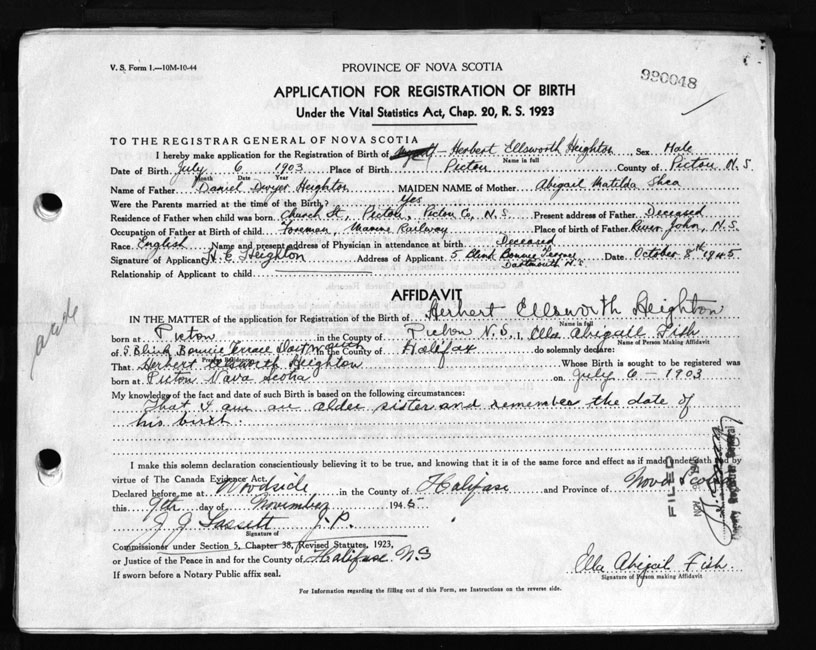 V. S. Form 1.—10M-10-44
PROVINCE OF NOVA SCOTIA
990048
APPLICATION FOR REGISTRATION OF BIRTH
Under the Vital Statistics Act, Chap. 20, R. S. 1923
TO THE REGISTRAR GENERAL OF NOVA SCOTIA
I hereby make application for the Registration of Birth of Herbert Ellsworth Heighton Sex Male
Name in full
Date of Birth July 6 1903 Place of Birth Pictou County of Pictou N.S.
Month Date Year
Name of Father Daniel Dwyer Heighton MAIDEN NAME of Mother Abigail Matilda Shea
Were the Parents married at the time of Birth? Yes
Residence of Father when child was born Church St, Pictou, Pictou Co, N.S. Present address of Father Deceased
Occupation of Father at Birth of child Foreman, Marine Railway Place of birth of Father River John, N.S.
Race English Name and present address of Physician in attendance at birth Deceased
Signature of Applicant H. E. Heighton Address of Applicant 5 Blink Bonnie Terrace Dartmouth N.S. Date October 8th 1945
Relationship of Applicant to child
AFFIDAVIT
IN THE MATTER of the application for Registration of the Birth of Herbert Ellsworth Heighton
Name in full
born at Picton in the County of Picton N.S. I, Ella Abigail Fish
Name of Person Making Affidavit
of 5 Blink Bonnie Terrace Dartmouth in the County of Halifax do solemnly declare:
That Herbert Ellsworth Heighton Whose Birth is sought to be registered was
born at Picton Nova Scotia on July 6 - 1903
My knowledge of the fact and date of such Birth is based on the following circumstances:
That I am an older sister and remember the date of
his birth.
I make this solemn declaration conscientiously believing it to be true, and knowing that it is of the same force and effect as if made under oath and by
virtue of The Canada Evidence Act.
Declared before me at Woodside in the County of Halifax and Province of Nova Scotia
this 9th day of November 1945
J. J. Fassett J.P.
Signature of
Commissioner under Section 5, Chapter 38, Revised Statutes, 1923,
or Justice of the Peace in and for the County of Halifax NS
If sworn before a Notary Public affix seal.
Ella Abigail Fish
Signature of Person making Affidavit
FILED
For Information regarding the filling out of this Form, see Instructions on the reverse side.